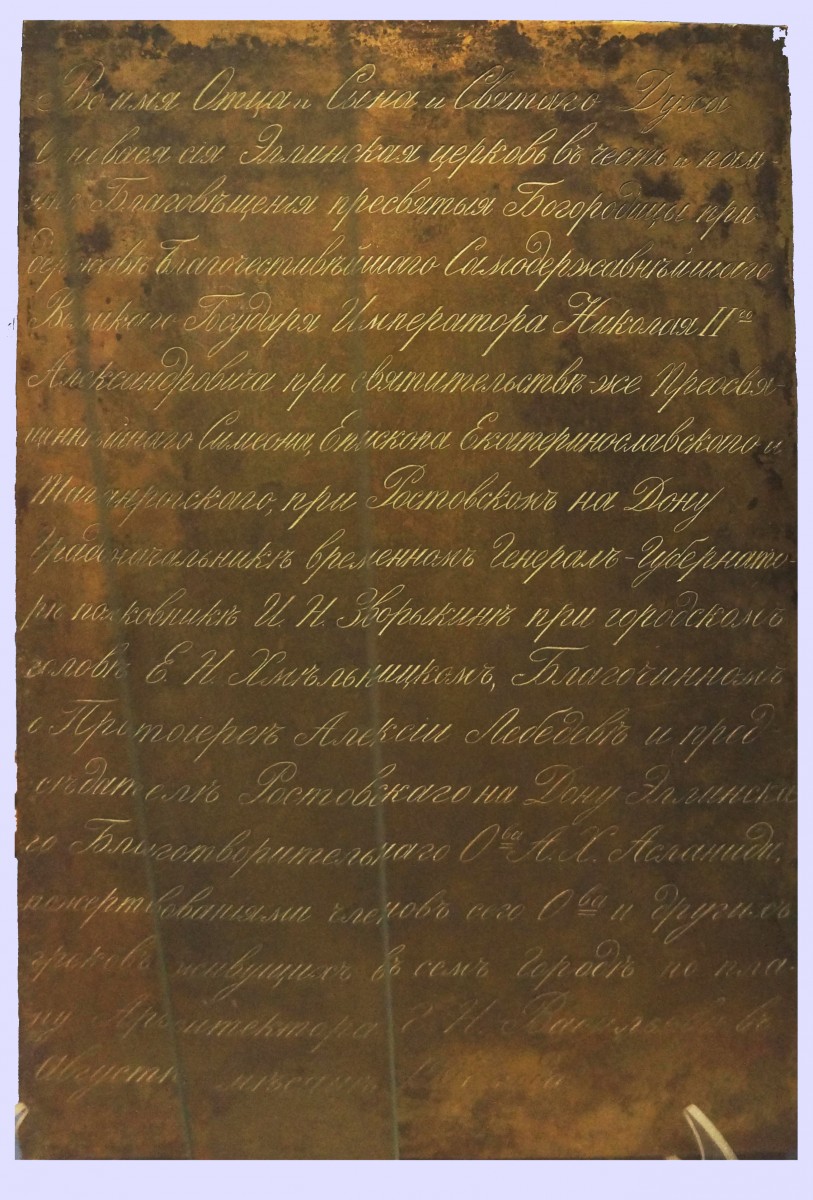 Во имя Отца и Сына и Святаго Духа
Основася сия Эллинская церковь въ честь и пам-
ять Благовѣщенія пресвятыя Богородицы при
державѣ Благочестивѣйшаго Самодержавнѣйшаго
Великаго Гсударя Императора Николая II го
Александровича при святительствѣ-же Преосвя-
щеннѣйшаго Симеона, Епископа Екатеринославскаго и
Таганрогскаго, при Ростовскомъ на Дону
Градоначальникѣ временномъ Генералъ-Губернато-
рѣ полковникѣ И. Н. Зворыкинѣ при городскомъ
головѣ Е. Н. Хмѣльницкомъ, Благочинномъ
о Протоіереѣ Алексіи Лебедевѣ и пред-
сѣдателѣ Ростовскаго на Дону Эллинска-
го Благотворительнаго О ва А. Х. Асланиди,
пожертвованіями членовъ сего О ва и другихъ
грековъ живущихъ въ семъ городѣ по пла-
ну Архитектора Г. Н. Васильева въ
Августѣ мѣсяцѣ